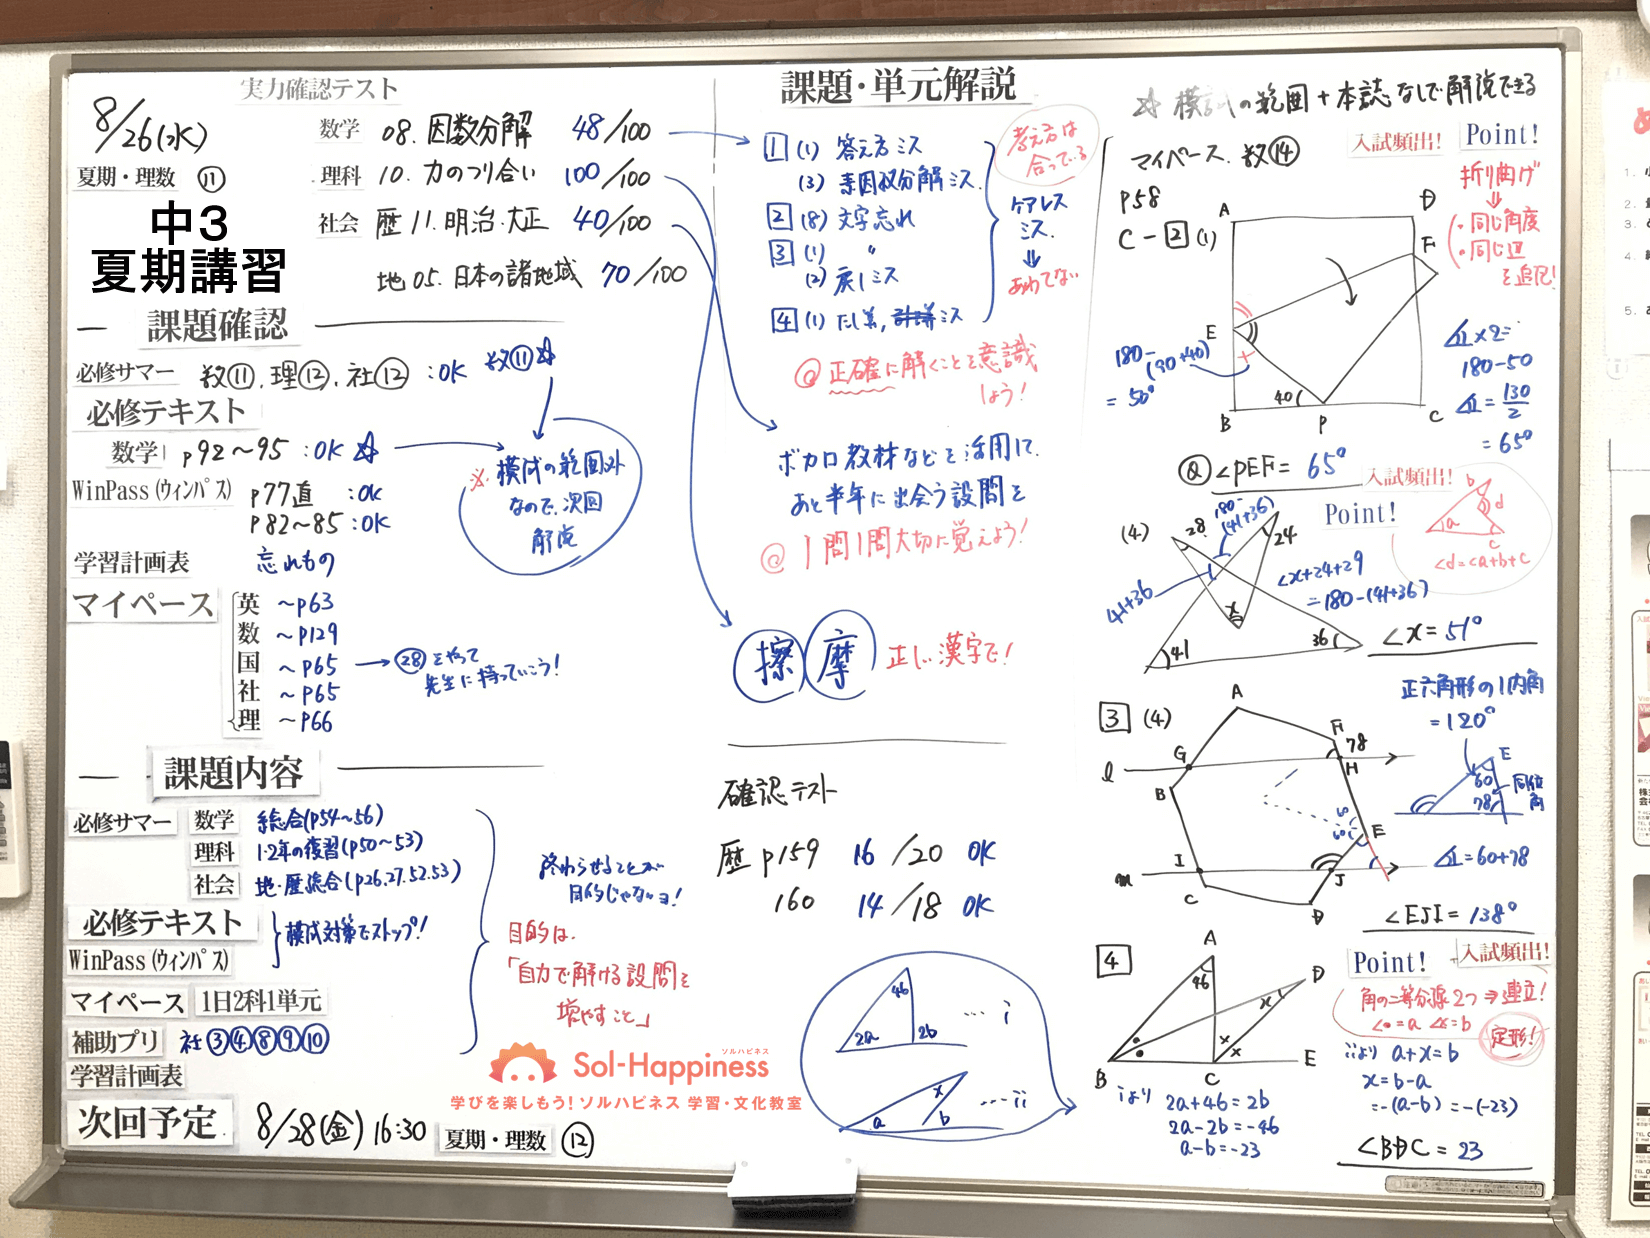 8/26(水)
夏期・理数 ⑪
中3
夏期講習
実力確認テスト
数学 08. 因数分解 48/100
理科 10. 力のつり合い 100/100
社会 歴 11. 明治・大正 40/100
地 05. 日本の諸地域 70/100
課題確認
必修サマー 数⑪, 理⑫, 社⑫ : OK 数⑪☆
必修テキスト
数学 p92～95 : OK ☆
WinPass(ウィンパス) p77直 : OK
p82～85 : OK
※模試の範囲外
なので、次回
解説
学習計画表 忘れもの
マイペース
英 ～p63
数 ～p129
国 ～p65 → ㉘をやって
先生に持っていこう!
社 ～p65
理 ～p66
課題内容
必修サマー 数学 総合(p54～56)
理科 1・2年の復習(p50～53)
社会 地・歴総合(p26.27.52.53)
必修テキスト
WinPass(ウィンパス)
模試対策でストップ!
マイペース 1日2科1単元
補助プリ 社③④⑧⑨⑩
学習計画表
終わらせることが
目的じゃないヨ!
目的は、
「自力で解ける設問を
増やすこと」
次回予定 8/28(金) 16:30 夏期・理数 ⑫
ソルハピネス
Sol-Happiness
学びを楽しもう! ソルハピネス 学習・文化教室
課題・単元解説
1 (1) 答え方ミス
(3) 素因数分解ミス.
2 (8) 文字忘れ
3 (1) 〃
(2) 戻しミス
4 (1) たし算, ミス
考え方は
合っている
ケアレス
ミス.
⇓
あわてない
@ 正確に解くことを意識
しよう!
ボカロ教材などを活用して、
あと半年に出会う設問を
@ 1問1問大切に覚えよう!
擦 摩 正しい漢字で!
確認テスト
歴 p159 16/20 OK
160 14/18 OK
46
2a 2b … i
x
a b … ii
☆ 模試の範囲+本誌なしで解説できる
マイペース. 数⑭
入試頻出! Point!
p58
C-2(1)
折り曲げ
⇓
・同じ角度
・同じ辺
を追記!
A D
F
E
B P C
40
180-
(90+40)
= 50°
×2=
180-50
= 130/2
= 65°
@ ∠PEF = 65°
入試頻出!
Point!
(4)
28 24
180-
(41+36)
41+36
x
41 36
∠x+24+29
=180-(41+36)
b
a d
c
∠d=∠a+b+c
∠x = 51°
3 (4)
A
F
78
G H
l
B
E
I J
m
C D
正六角形の1内角
=120°
E
60
78
同位角
=60+78
∠EJI = 138°
4
A
46
D
x
x x
B C E
Point! 入試頻出!
角の二等分線2つ⇒連立!
∠●=a ∠x=b
定形!
iより 2a+46=2b
2a-2b=-46
a-b=-23
iiより a+x=b
x=b-a
=-(a-b)=-(-23)
∠BDC = 23